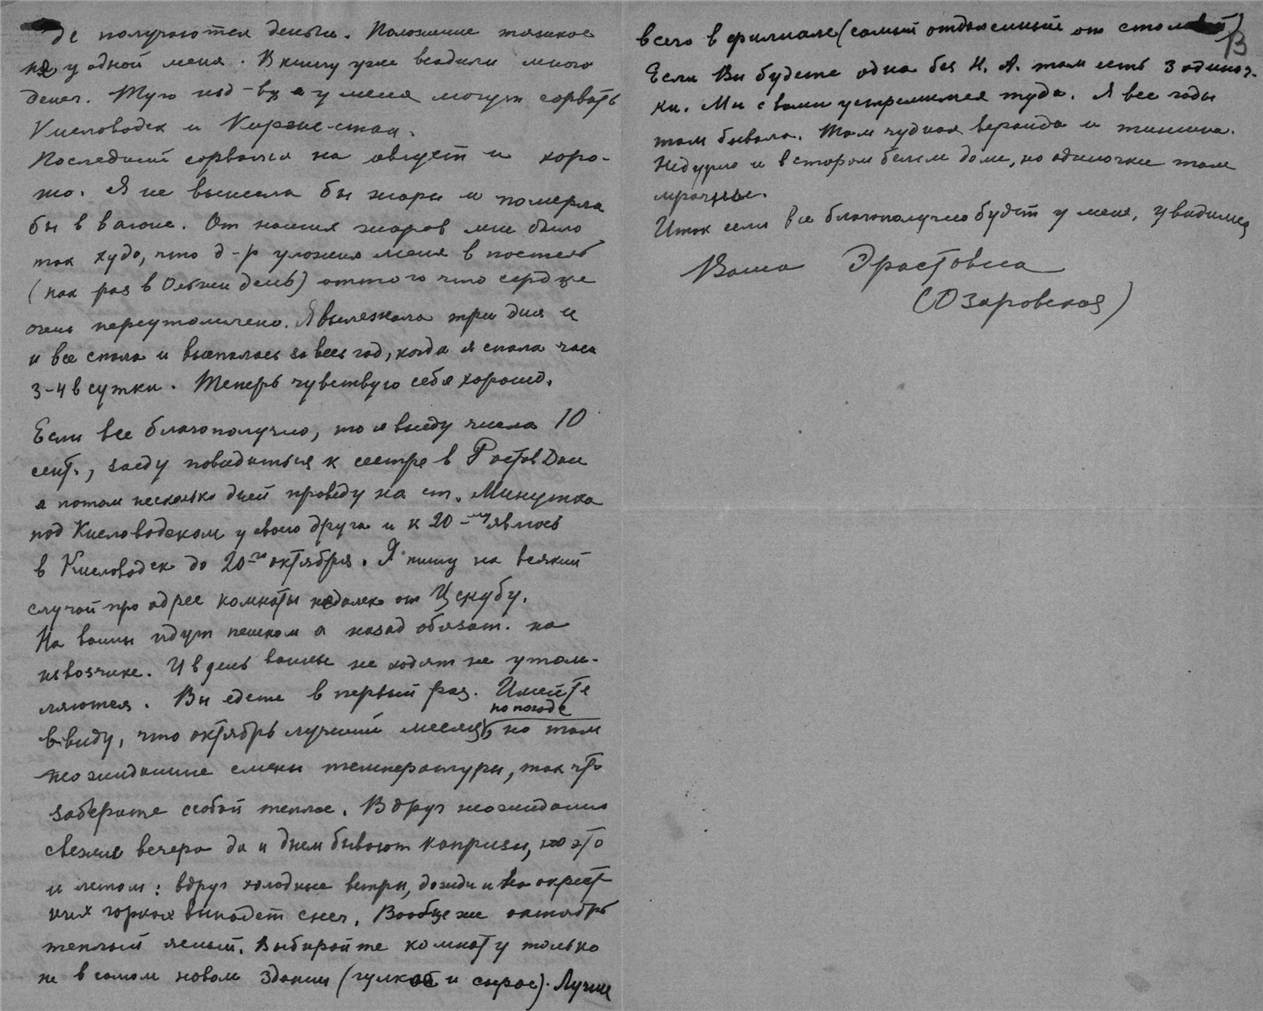 де получаются деньги. Положение тяжкое
не у одной меня. В книгу уже всадили много
денег. Тут изд-ва у меня могут сорвать
Кисловодск и Киргис-стан.
Последний сорвался на август и хоро-
шо. Я не вынесла бы жары и померла
бы в вагоне. От наших жаров мне было
так худо, что д-р уложил меня в постель
(как раз в Ольгин день) оттого что сердце
очень переутомлено. Я вылежала три дня и
и все спала и выспалась за весь год, когда я спала часа
3-4 в сутки. Теперь чувствую себя хорошо.
Если все благополучно, то я выеду числа 10
сент., заеду повидаться к сестре в Ростов Дон
а потом несколько дней проведу на ст. Минутка
под Кисловодском у своего друга и к 20-му явлюсь
в Кисловодск до 20-го октября. Я пишу на всякий
случай про адрес комнаты недалеко от Цекубу.
На ванны идут пешком а назад обязат. на
извозчике. И в день ванны не ходят не утом-
ляются. Вы едете в первый раз. Имейте
по погоде
ввиду, что октябрь лучший месяц, но там
неожиданные смены температуры, так что
заберите с собой теплое. Вдруг неожиданно
свежие вечера да и днем бывают капризы, но это
и летом: вдруг холодные ветры, дожди и на окрест-
ных горках выпадет снег. Вообще же октябрь
теплый ясный. Выбирайте комнату только
не в самом новом здании (гулкое и сырое). Лучше
13
всего в филиале (самый отдаленный от столовой)
Если Вы будете одна без Н. А. там есть 3 одиноч-
ки. Мы с вами устремимся туда. Я все годы
там бывала. Там чудная веранда и тишина.
Недурно и в старом белом доме, но одиночки там
мрачные.
Итак если все благополучно будет у меня, увидимся
Ваша Эрастовна
(Озаровская)